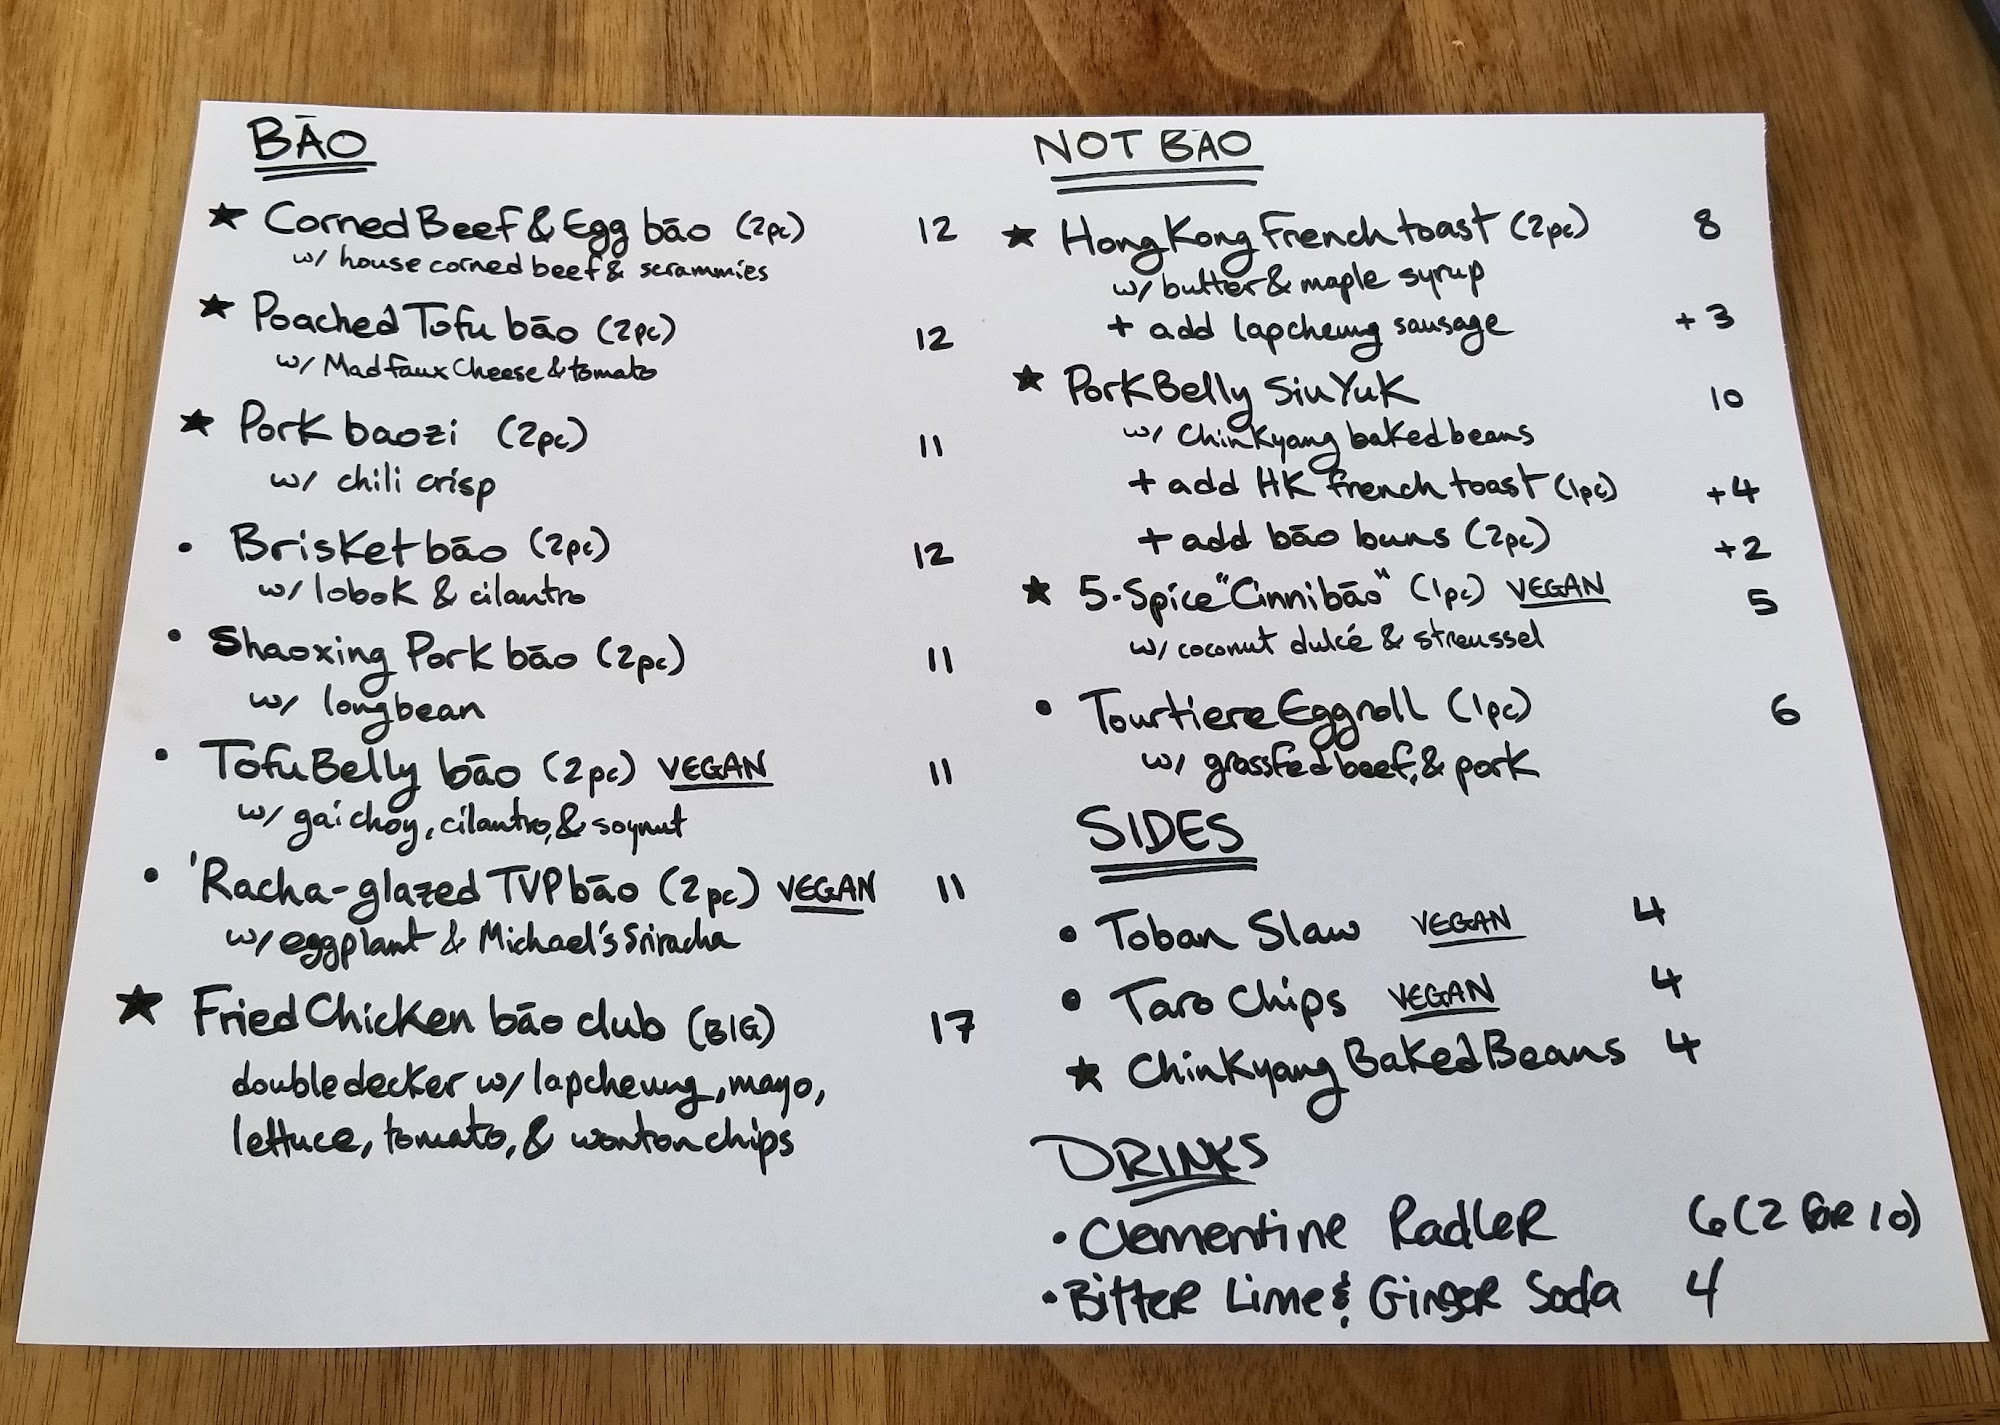 BĀO
★ Corned Beef & Egg bāo (2pc) 12
w/ house corned beef & scrammies
★ Poached Tofu bāo (2pc) 12
w/ Mad Faux Cheese & tomato
★ Pork baozi (2pc) 11
w/ chili crisp
• Brisket bāo (2pc) 12
w/ lobok & cilantro
• Shaoxing Pork bāo (2pc) 11
w/ longbean
• Tofu Belly bāo (2pc) VEGAN 11
w/ gai choy, cilantro, & soynut
• 'Racha-glazed TVP bāo (2pc) VEGAN 11
w/ eggplant & Michael's Sriracha
★ Fried Chicken bāo club (BIG) 17
double decker w/ lapcheung, mayo,
lettuce, tomato, & wonton chips
NOT BĀO
★ Hong Kong French toast (2pc) 8
w/ butter & maple syrup
+ add lapcheung sausage +3
★ Pork Belly Siu Yuk 10
w/ Chinkyang baked beans
+ add HK french toast (1pc) +4
+ add bāo buns (2pc) +2
★ 5-Spice "Cinnibāo" (1pc) VEGAN 5
w/ coconut dulcé & streussel
• Tourtiere Eggroll (1pc) 6
w/ grassfed beef, & pork
SIDES
• Toban Slaw VEGAN 4
• Taro Chips VEGAN 4
★ Chinkyang Baked Beans 4
DRINKS
• Clementine Radler 6 (2 for 10)
• Bitter Lime & Ginger Soda 4